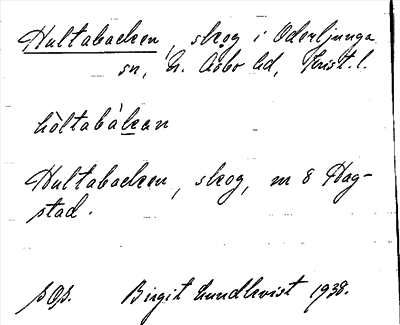 Hultabacken, skog i Oderljunga
sn, N. Åsbo hd, Krist. l.
hòltabàkan
Hultabacken, skog, m 8 Hag-
stad.
sOp. Birgit Lundkvist 1938.